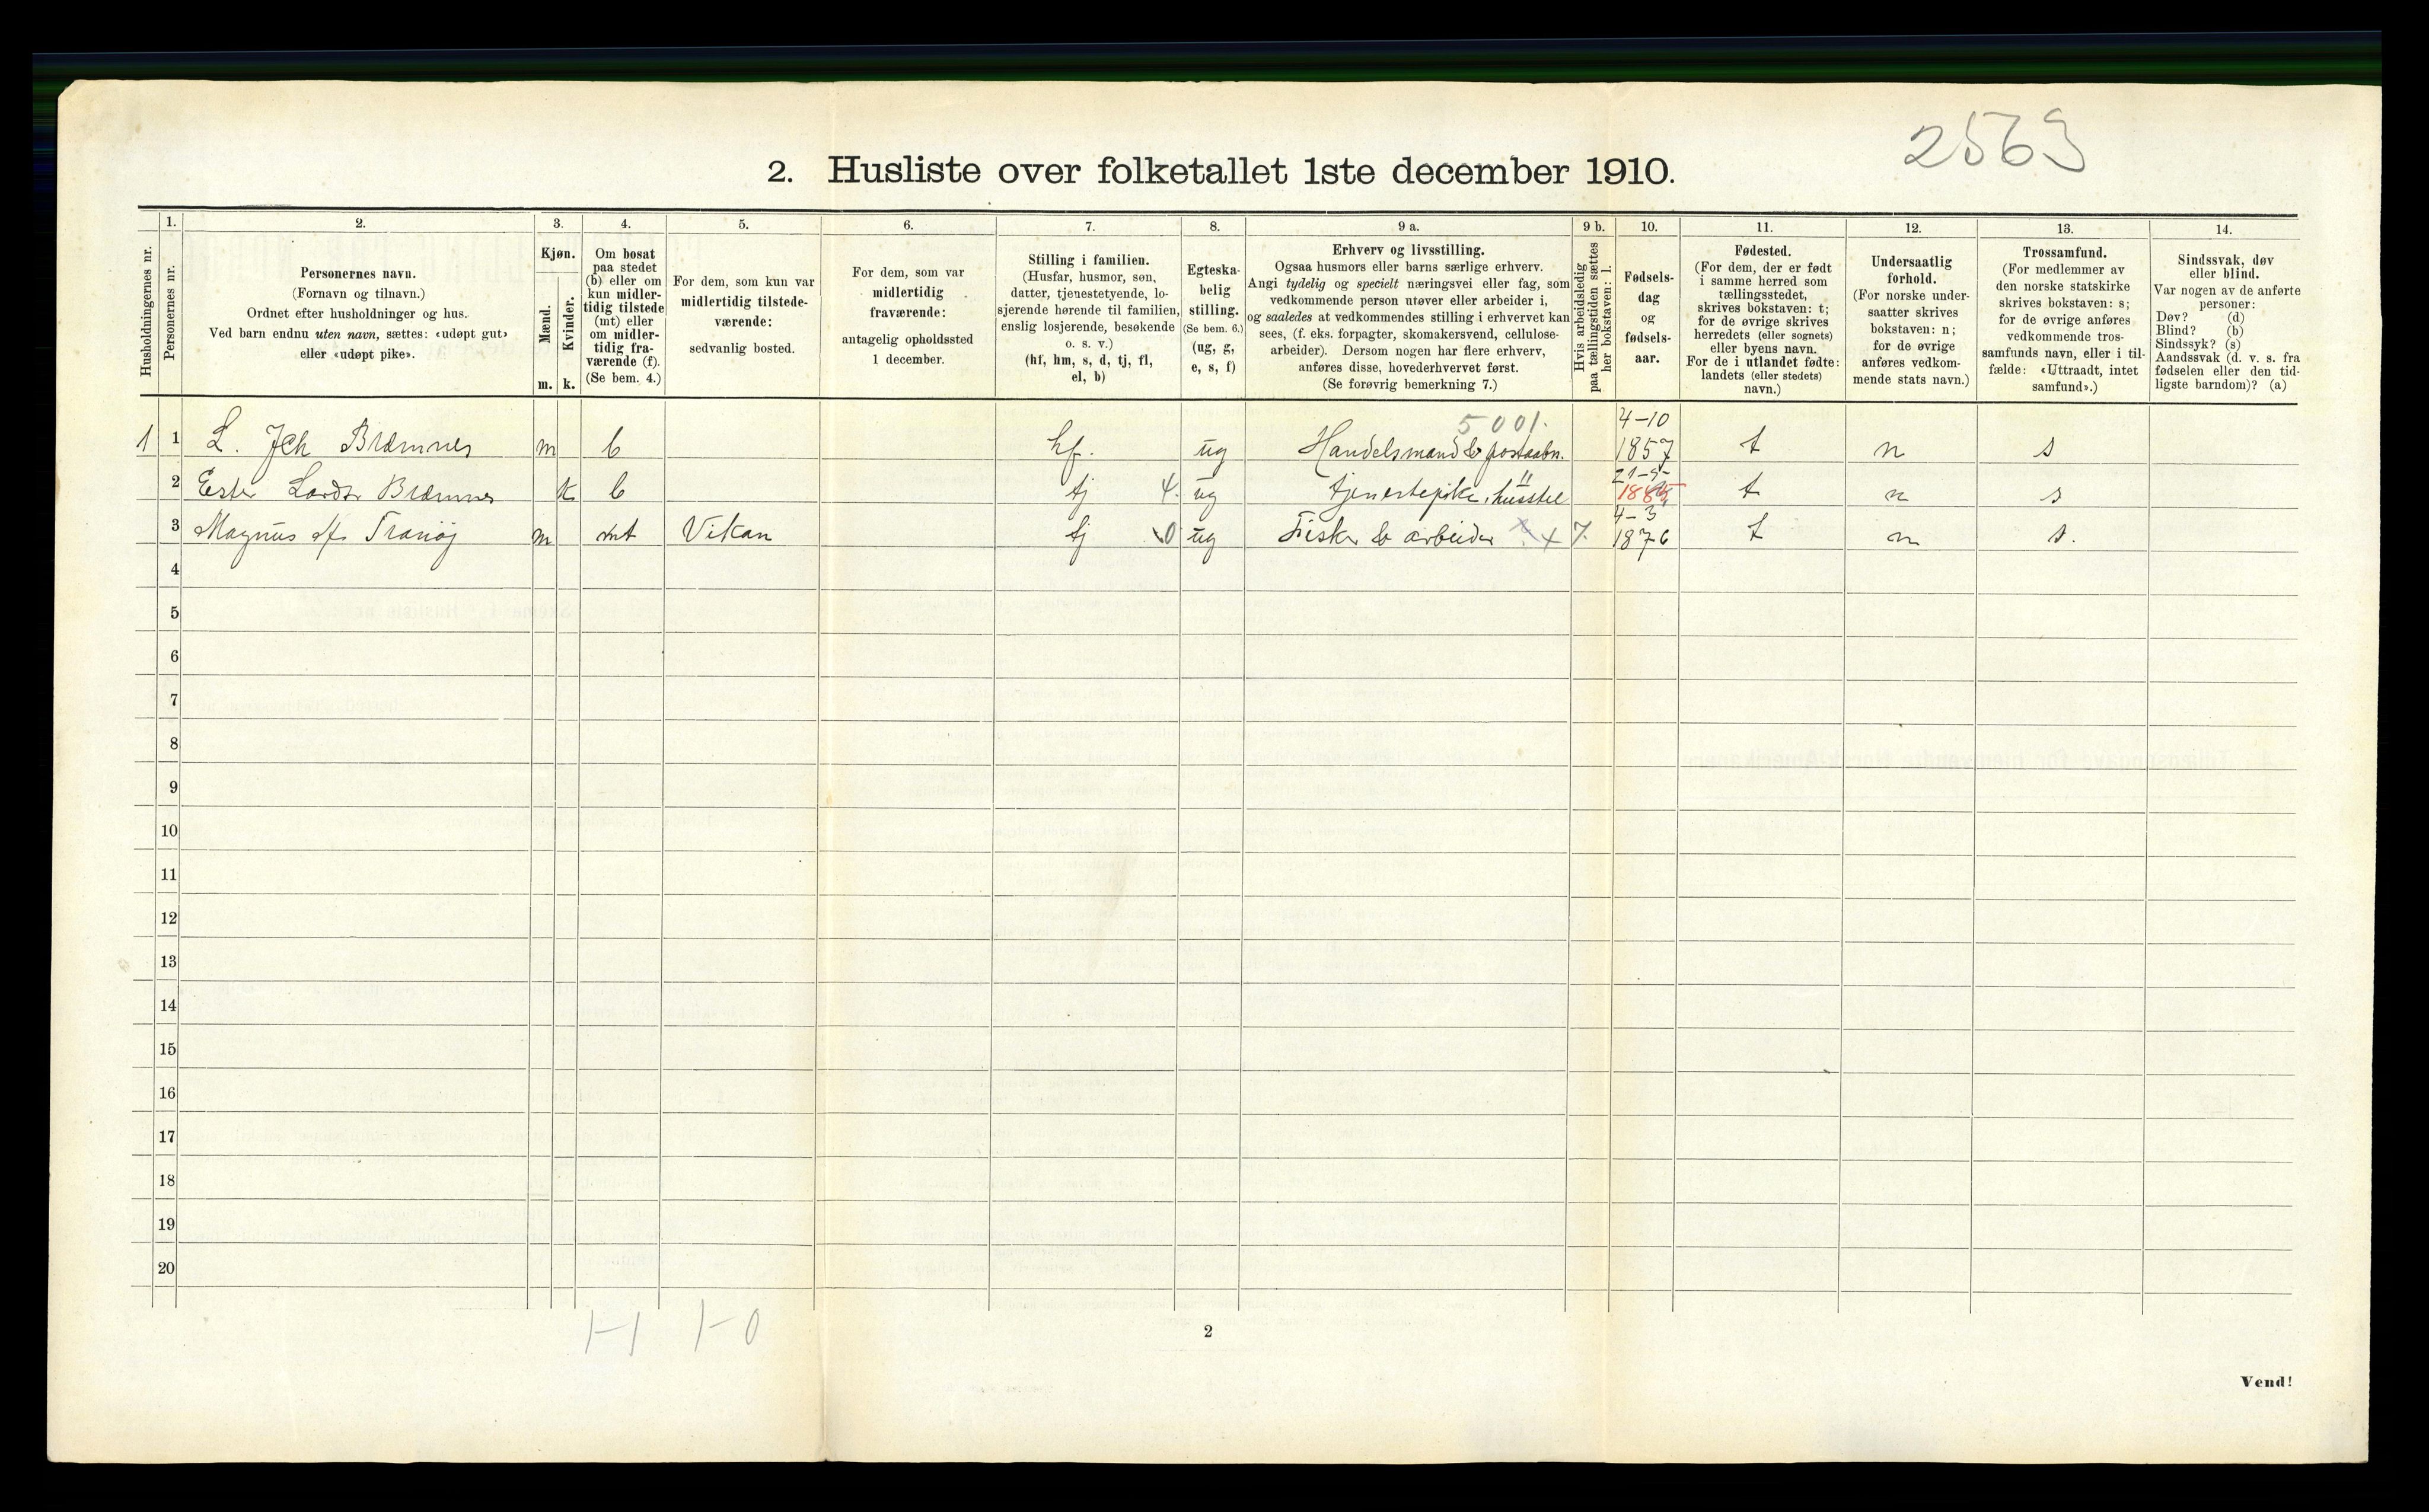 2563
2. Husliste over folketallet 1ste december 1910.
Husholdningernes nr.
1.
Personernes nr.
2.
Personernes navn.
(Fornavn og tilnavn.)
Ordnet efter husholdninger og hus.
Ved barn endnu uten navn, sættes: «udøpt gut»
eller «udøpt pike».
3.
Kjøn.
Mænd.
Kvinder.
m. k.
4.
Om bosat
paa stedet
(b) eller om
kun midler-
tidig tilstede
(mt) eller
om midler-
tidig fra-
værende (f).
(Se bem. 4.)
5.
For dem, som kun var
midlertidig tilstede-
værende:
sedvanlig bosted.
6.
For dem, som var
midlertidig
fraværende:
antagelig opholdssted
1 december.
7.
Stilling i familien.
(Husfar, husmor, søn,
datter, tjenestetyende, lo-
sjerende hørende til familien,
enslig losjerende, besøkende
o. s. v.)
(hf, hm, s, d, tj, fl,
el, b)
8.
Egteska-
belig
stilling.
(Se bem. 6.)
(ug, g,
e, s, f)
9 a.
Erhverv og livsstilling.
Ogsaa husmors eller barns særlige erhverv.
Angi tydelig og specielt næringsvei eller fag, som
vedkommende person utøver eller arbeider i,
og saaledes at vedkommendes stilling i erhvervet kan
sees, (f. eks. forpagter, skomakersvend, cellulose-
arbeider). Dersom nogen har flere erhverv,
anføres disse, hovederhvervet først.
(Se forøvrig bemerkning 7.)
9 b.
Hvis arbeidsledig
paa tællingstiden sættes
her bokstaven: l.
10.
Fødsels-
dag
og
fødsels-
aar.
11.
Fødested.
(For dem, der er født
i samme herred som
tællingsstedet,
skrives bokstaven: t;
for de øvrige skrives
herredets (eller sognets)
eller byens navn.
For de i utlandet fødte:
landets (eller stedets)
navn.)
12.
Undersaatlig
forhold.
(For norske under-
saatter skrives
bokstaven: n;
for de øvrige
anføres vedkom-
mende stats navn.)
13.
Trossamfund.
(For medlemmer av
den norske statskirke
skrives bokstaven: s;
for de øvrige anføres
vedkommende tros-
samfunds navn, eller i til-
fælde: «Uttraadt, intet
samfund».)
14.
Sindssvak, døv
eller blind.
Var nogen av de anførte
personer:
Døv? (d)
Blind? (b)
Sindssyk? (s)
Aandssvak (d. v. s. fra
fødselen eller den tid-
ligste barndom)? (a)
5001. 4-10
1 1 L. Bræmnes m b hf. ug Handelsmand & postaabn. 1857 t n s
21-5-
2 Ester Bræmnes k b tj 4. ug tjenestepike, husstel t n s
4-3
3 Magnus Tranøj m mt Vikan tj 0 ug Fisker & arbeider 1876 t n s.
4
5
6
7
8
9
10
11
12
13
14
15
16
17
18
19
20
1-1 1-0
2
Vend!